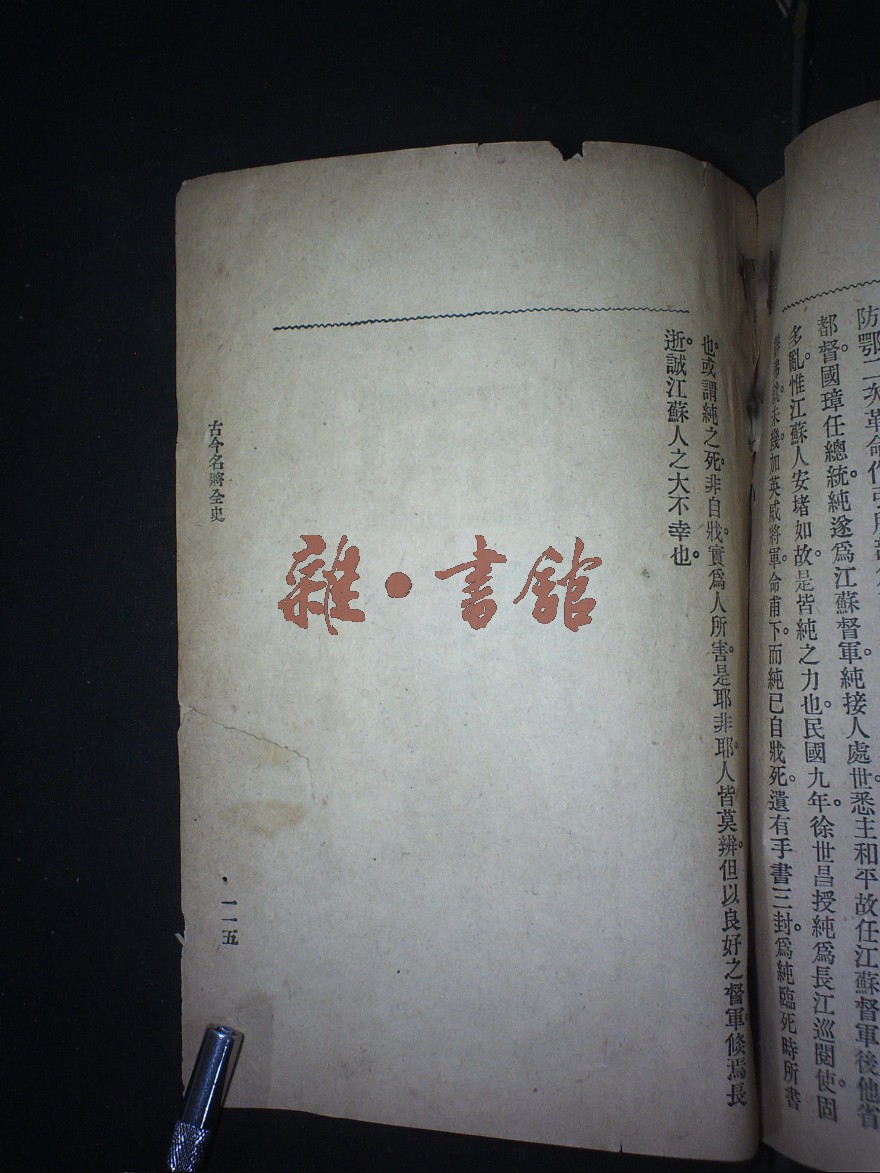 防鄂二次革命作
都督國璋任總統。純遂爲江蘇督軍。純接人處世。悉主和平。故任江蘇督軍後。他省
多亂。惟江蘇人安堵如故。是皆純之力也。民國九年。徐世昌授純爲長江巡閱使。固
未幾。加英威將軍。命甫下。而純已自戕死。遺有手書三封。爲純臨死時所書
也。或謂純之死。非自戕。實爲人所害。是耶非耶。人皆莫辨。但以良好之督軍。倏焉長
逝。誠江蘇人之大不幸也。
古今名將全史
一一五
雜·書館